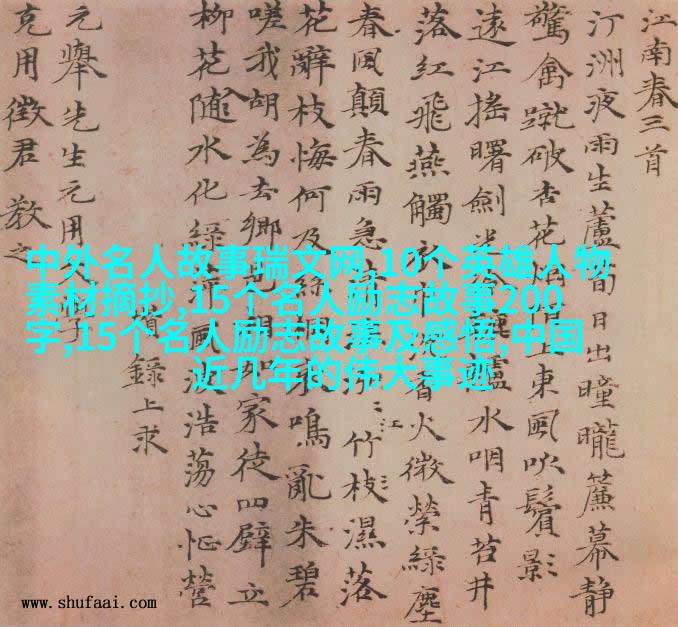 江南春三首
汀洲夜雨生蘆筍日出曈曨簾幕静
驚禽蹴破杏花煙陌上東風吹鬢影
遠江摇曙劍光轆轤水咽青苔井
落紅飛燕觸衣香火微縈緑塵
春風顛春雨急清江竹枝濕落
花辭枝悔何及絲鳴亂朱碧
嗟我胡為去鄉邑相如家徒四壁立
柳花隨水化緑萍風波浩蕩心怔營
瓚録上求
元舉先生元用
克用徵君 教之
中外名人故事瑞文网,10个英雄人物
素材摘抄,15个名人励志故事200
字,15个名人励志故事及感悟,中国
近几年的伟大事迹
www.shufaai.com